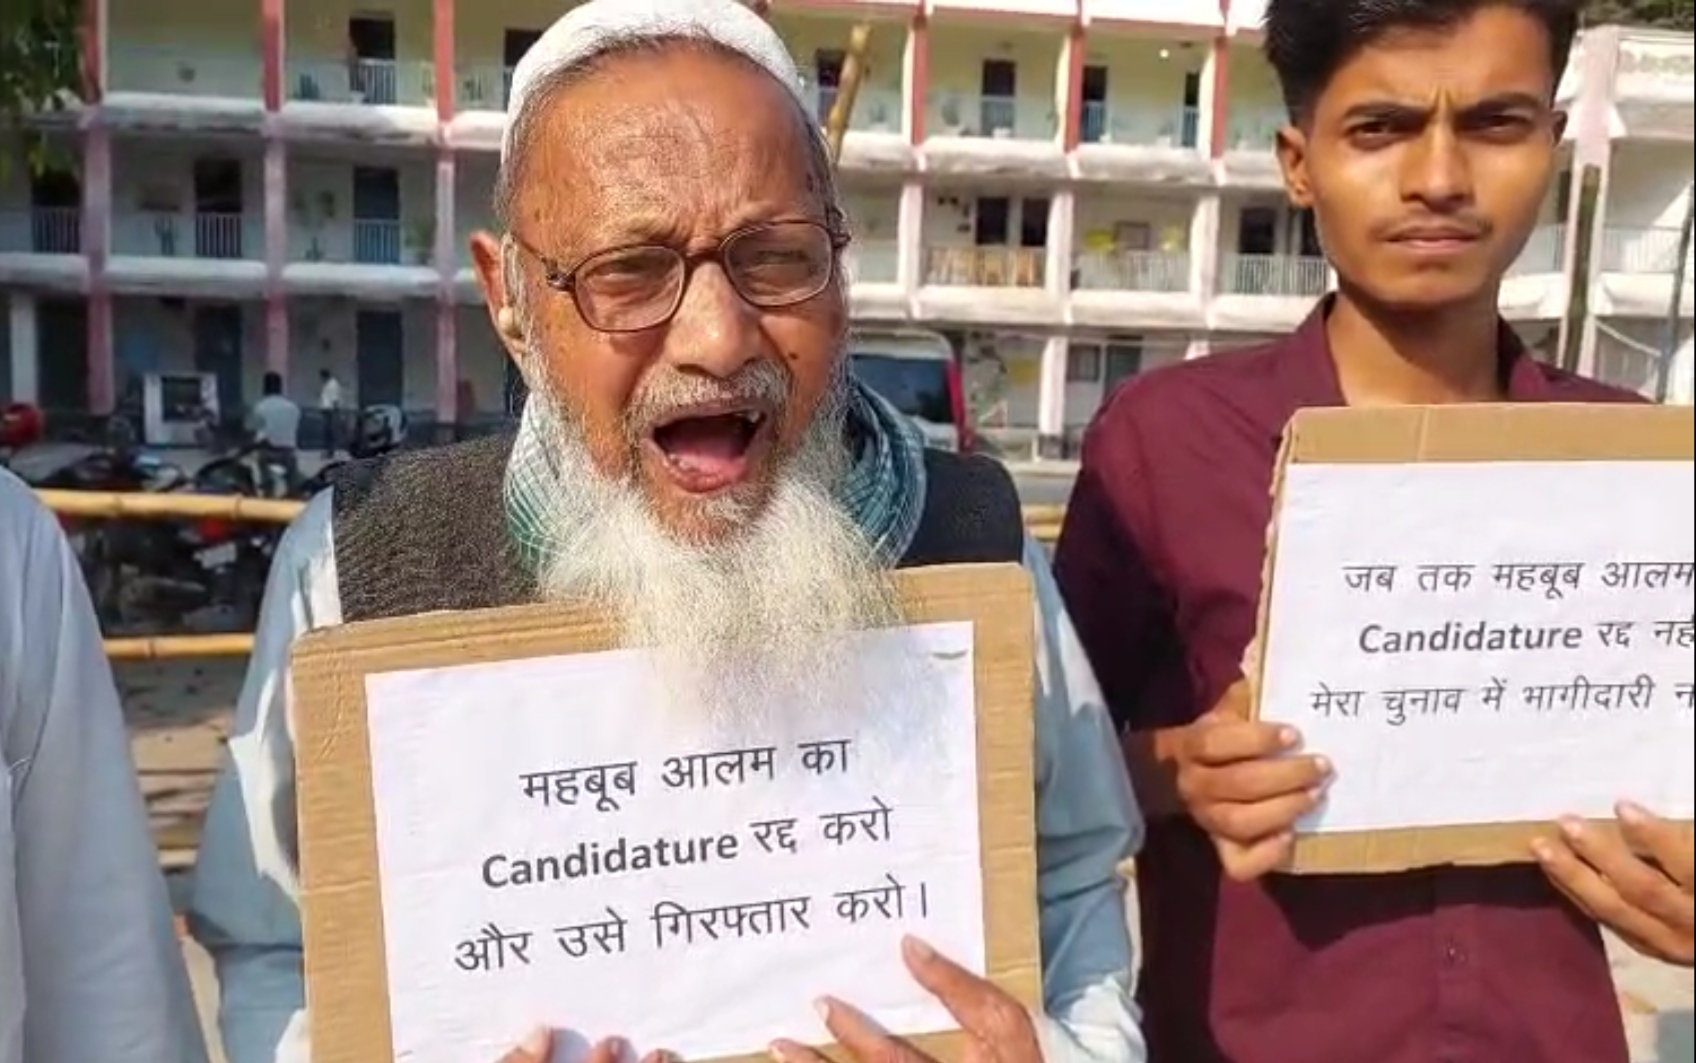 महबूब आलम का
Candidature रद्द करो
और उसे गिरफ्तार करो।
जब तक महबूब आलम
Candidature रद्द
मेरा चुनाव में भागीदारी